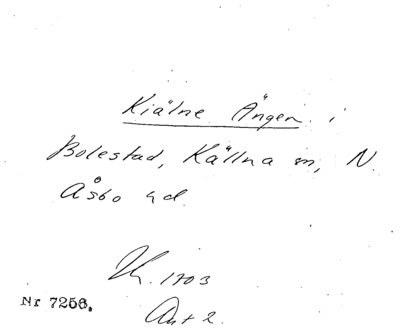 Kiälne Ängen i
Bolestad, Källna sn, N.
Åsbo hd.
Nr 7256.
1703
Akt 2.